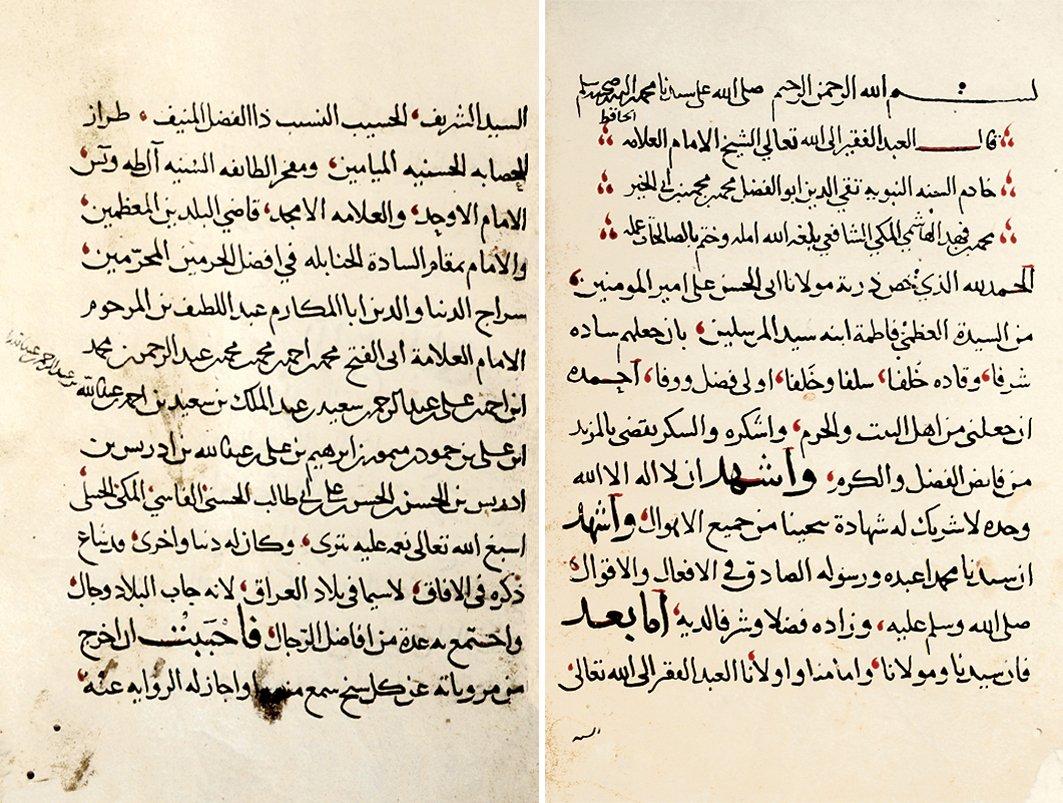 بسم الله الرحمن الرحيم صلى الله على سيدنا محمد وسلم
قال العبد الفقير الى الله تعالى الشيخ الامام العلامه
الحافظ
خادم السنه النبويه تقي الدين ابو الفضل محمد بن محمد بن ابي الخير
محمد بن فهد الهاشمي المكي الشافعي بلغه الله امله وختم بالصالحات عمله
الحمد لله الذي خص ذرية مولانا ابى الحسن على امير المومنين
من السيدة العظمى فاطمة ابنه سيد المرسلين بان جعلهم ساده
شرفا وقاده خلفا سلفا وخلفا اولى فضل ووفا أحمده
ان جعلنى من اهل البيت والحرم واشكره والشكر يقضى بالمزيد
من فائض الفضل والكرم وأشهد ان لا اله الا الله
وحده لا شريك له شهادة تنجينا من جميع الاهوال وأشهد
ان سيدنا محمدا عبده ورسوله الصادق في الافعال والاقوال
صلى الله وسلم عليه وزاده فضلا وشرفا لديه أما بعد
فان سيدنا ومولانا وامامنا واولانا العبد الفقير الى الله تعالى
السيد
السيد الشريف الحسيب النسيب ذا الفضل المنيف طراز
العصابه الحسنيه الميامين ومفخر الطائفه السنيه آل طه ويس
الامام الاوحد والعلامه الامجد قاضي البلدين المعظمين
والامام بمقام السادة الحنابله في افضل الحرمين المحرمين
سراج الدنيا والدين ابا المكارم عبد اللطيف بن المرحوم
الامام العلامة ابى الفتح محمد بن احمد بن محمد بن محمد بن عبد الرحمن بن محمد
بن عبد الرحمن
ابن احمد بن على بن عبد الرحمن بن سعيد بن عبد الملك بن سعيد بن احمد بن عبد الله
ابن على بن حمود بن ميمون بن ابرهيم بن على بن عبد الله بن ادريس بن
ادريس بن الحسن بن الحسن بن على بن ابى طالب الحسنى الفاسي المكى الحنبلى
اسبغ الله تعالى نعمه عليه تترى وكان له دنيا واخرى قد شاع
ذكره فى الافاق لاسيما فى بلاد العراق لانه جاب البلاد وجال
واجتمع به عدة من افاضل الرجال فأحببت ان اخرج
من مروياته عن كل شيخ سمع منه او اجاز له الروايه عنه